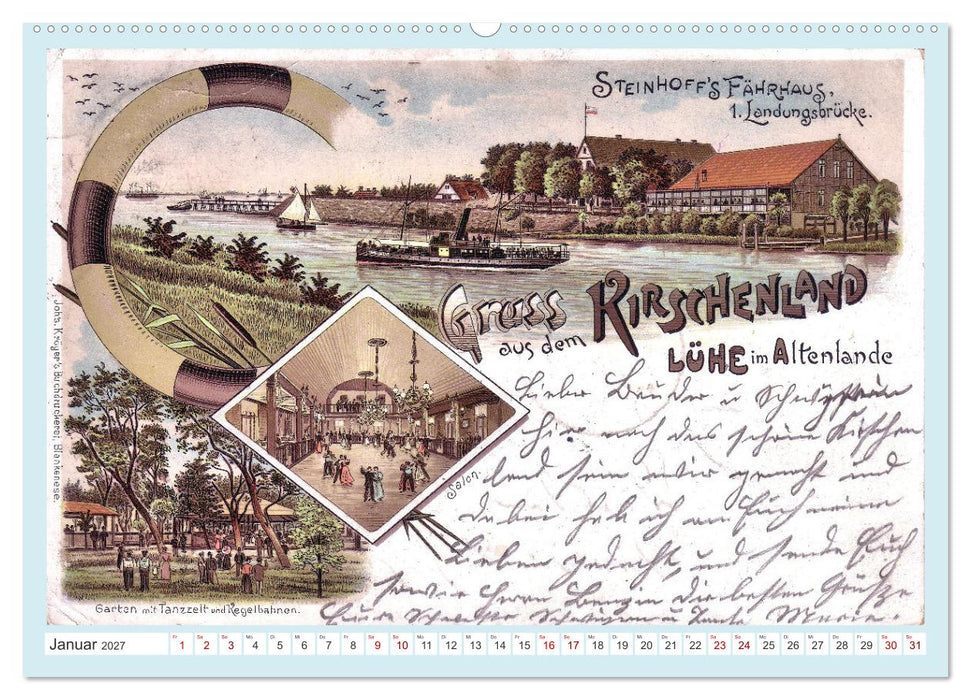 STEINHOFF'S FÄHRHAUS,
1. Landungsbrücke.
Gruss
aus dem
KIRSCHENLAND
LÜHE im Altenlande
Lieber Bruder u Schwägerin
hier nach das schöne Kirschen
land sein wir gemacht und
dabei hab ich an Euch meine
Lieben gedacht, und sende Euch
sowie Herrn die besten Grüße
Eure Schwester Schwägerin u Tante Marie.
Salon.
Garten mit Tanzzelt und Kegelbahnen.
Johs. Kröger's Buchdruckerei, Blankenese.
Januar 2027
Fr Sa So Mo Di Mi Do Fr Sa So Mo Di Mi Do Fr Sa So Mo Di Mi Do Fr Sa So Mo Di Mi Do Fr Sa So
1 2 3 4 5 6 7 8 9 10 11 12 13 14 15 16 17 18 19 20 21 22 23 24 25 26 27 28 29 30 31